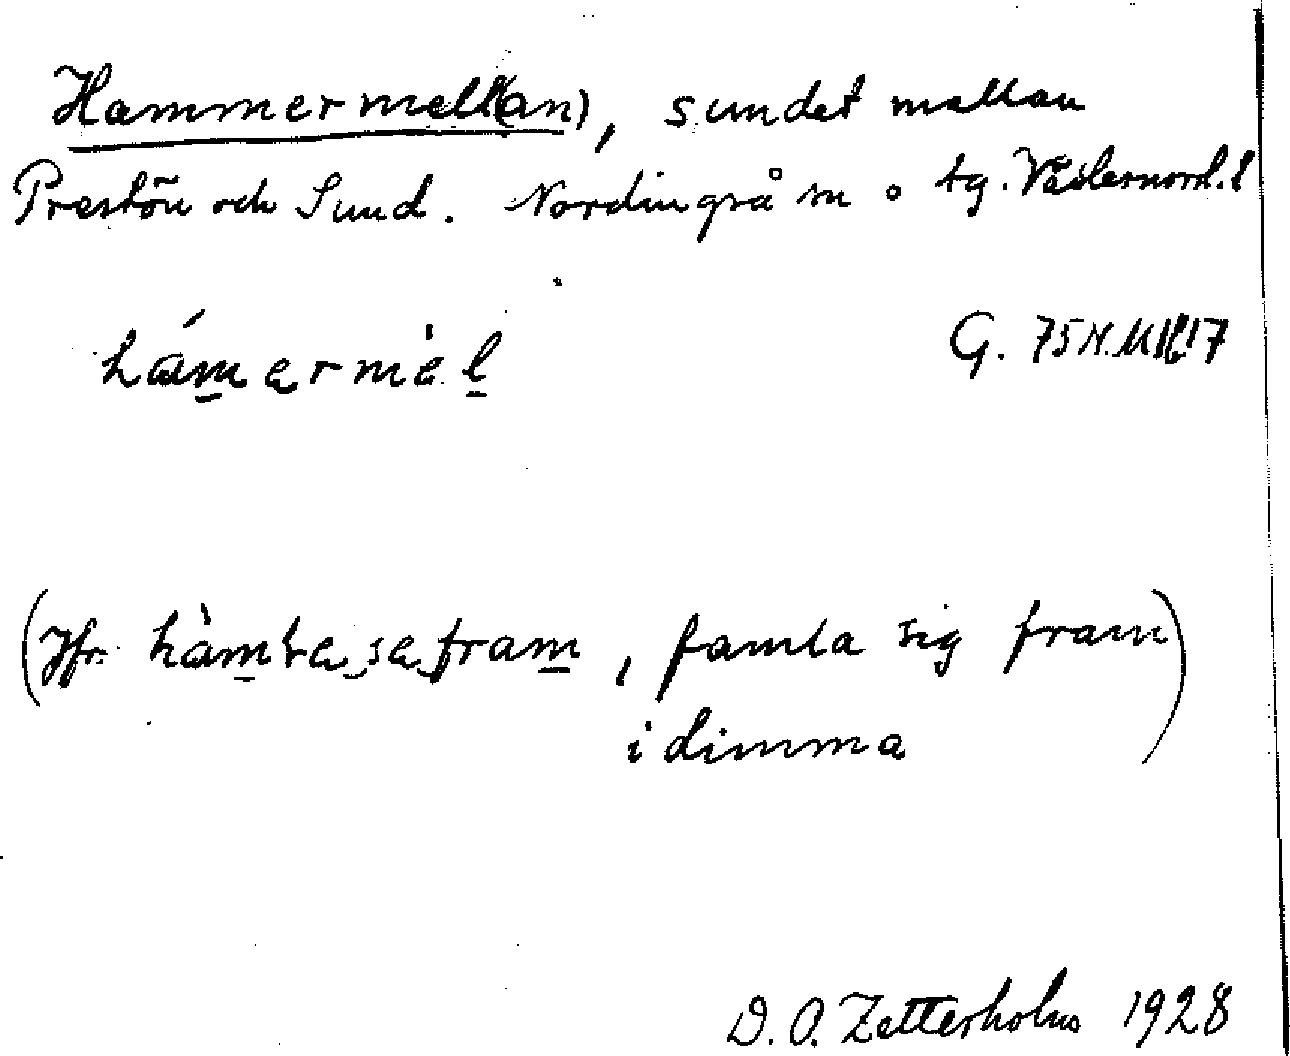 Hammermell(an), sundet mellan
Prestön och Sund. Nordingrå sn o tg. Västernorrl. l
hámermèl
G. 75
(Jfr. hàmbra sa fram, famla sig fram)
i dimma
D. O. Zetterholm 1928